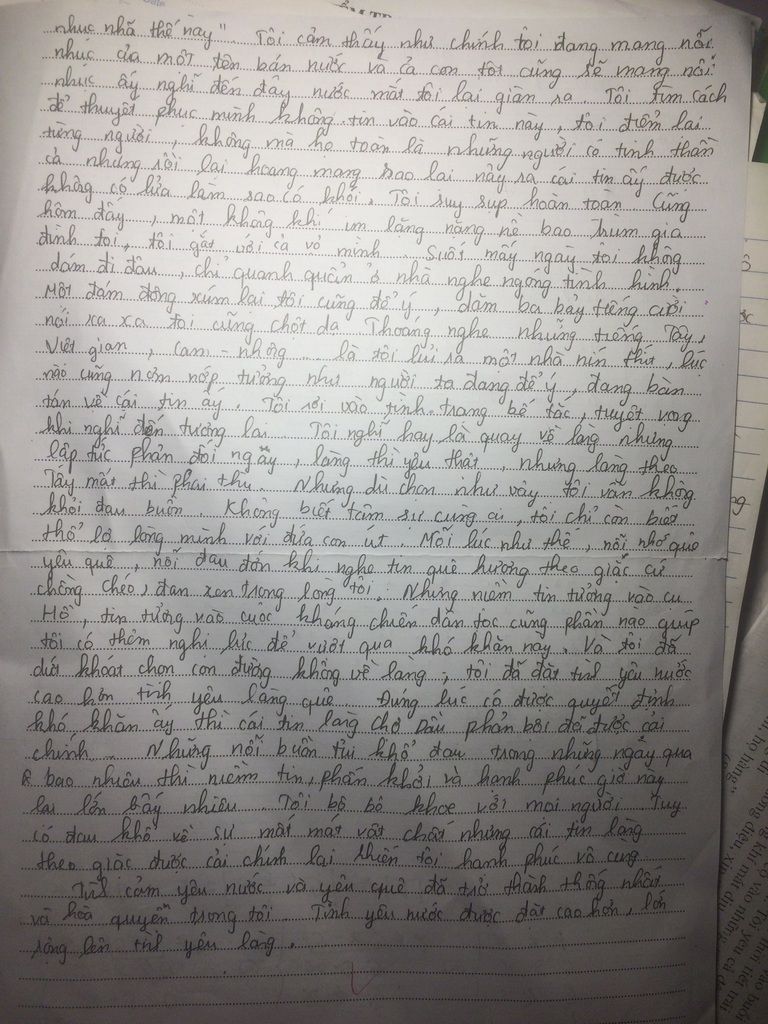 nhục nhã thế này". Tôi cảm thấy như chính tôi đang mang nỗi
nhục của một tên bán nước và cả con tôi cũng sẽ mang nỗi
nhục ấy nghĩ đến đây nước mắt tôi lại giàn ra. Tôi tìm cách
để thuyết phục mình không tin vào cái tin này, tôi điểm lại
từng người, không mà họ toàn là những người có tinh thần
cả nhưng rồi lại hoang mang sao lại nảy ra cái tin ấy được
không có lửa làm sao có khói. Tôi suy sụp hoàn toàn. Cũng
hôm đấy, một không khí im lặng nặng nề bao trùm gia
đình tôi, tôi gắt với cả vợ mình. Suốt mấy ngày tôi không
dám đi đâu, chỉ quanh quẩn ở nhà nghe ngóng tình hình.
Một đám đông xúm lại tôi cũng để ý, dăm ba bảy tiếng cười
nói xa xa tôi cũng chột dạ. Thoáng nghe những tiếng Tây,
Việt gian, cam-nhông... là tôi lủi ra một nhà nín thít, lúc
nào cũng nơm nớp tưởng như người ta đang để ý, đang bàn
tán về cái tin ấy. Tôi rơi vào tình trạng bế tắc, tuyệt vọng
khi nghĩ đến tương lai. Tôi nghĩ hay là quay về làng nhưng
lập tức phản đối ngay, làng thì yêu thật, nhưng làng theo
Tây mất thì phải thù. Nhưng dù chọn như vậy tôi vẫn không
khỏi đau buồn. Không biết tâm sự cùng ai, tôi chỉ còn biết
thổ lộ lòng mình với đứa con út. Mỗi lúc như thế, nỗi nhớ quê
yêu quê, nỗi đau đớn khi nghe tin quê hương theo giặc cứ
chồng chéo, đan xen trong lòng tôi. Nhưng niềm tin tưởng vào cụ
Hồ, tin tưởng vào cuộc kháng chiến dân tộc cũng phần nào giúp
tôi có thêm nghị lực để vượt qua khó khăn này. Và tôi đã
dứt khoát chọn con đường không về làng, tôi đã đặt tình yêu nước
cao hơn tình yêu làng quê. Đúng lúc có được quyết định
khó khăn ấy thì cái tin làng chợ Dầu phản bội đã được cải
chính. Những nỗi buồn tủi khổ đau trong những ngày qua
bao nhiêu thì niềm tin, phấn khởi và hạnh phúc giờ này
lại lớn bấy nhiêu. Tôi bô bô khoe với mọi người. Tuy
có đau khổ về sự mất mát vật chất nhưng cái tin làng
theo giặc được cải chính lại khiến tôi hạnh phúc vô cùng
Tình cảm yêu nước và yêu quê đã trở thành thống nhất
và hòa quyện trong tôi. Tình yêu nước được đặt cao hơn, lớn
rộng lên tình yêu làng.